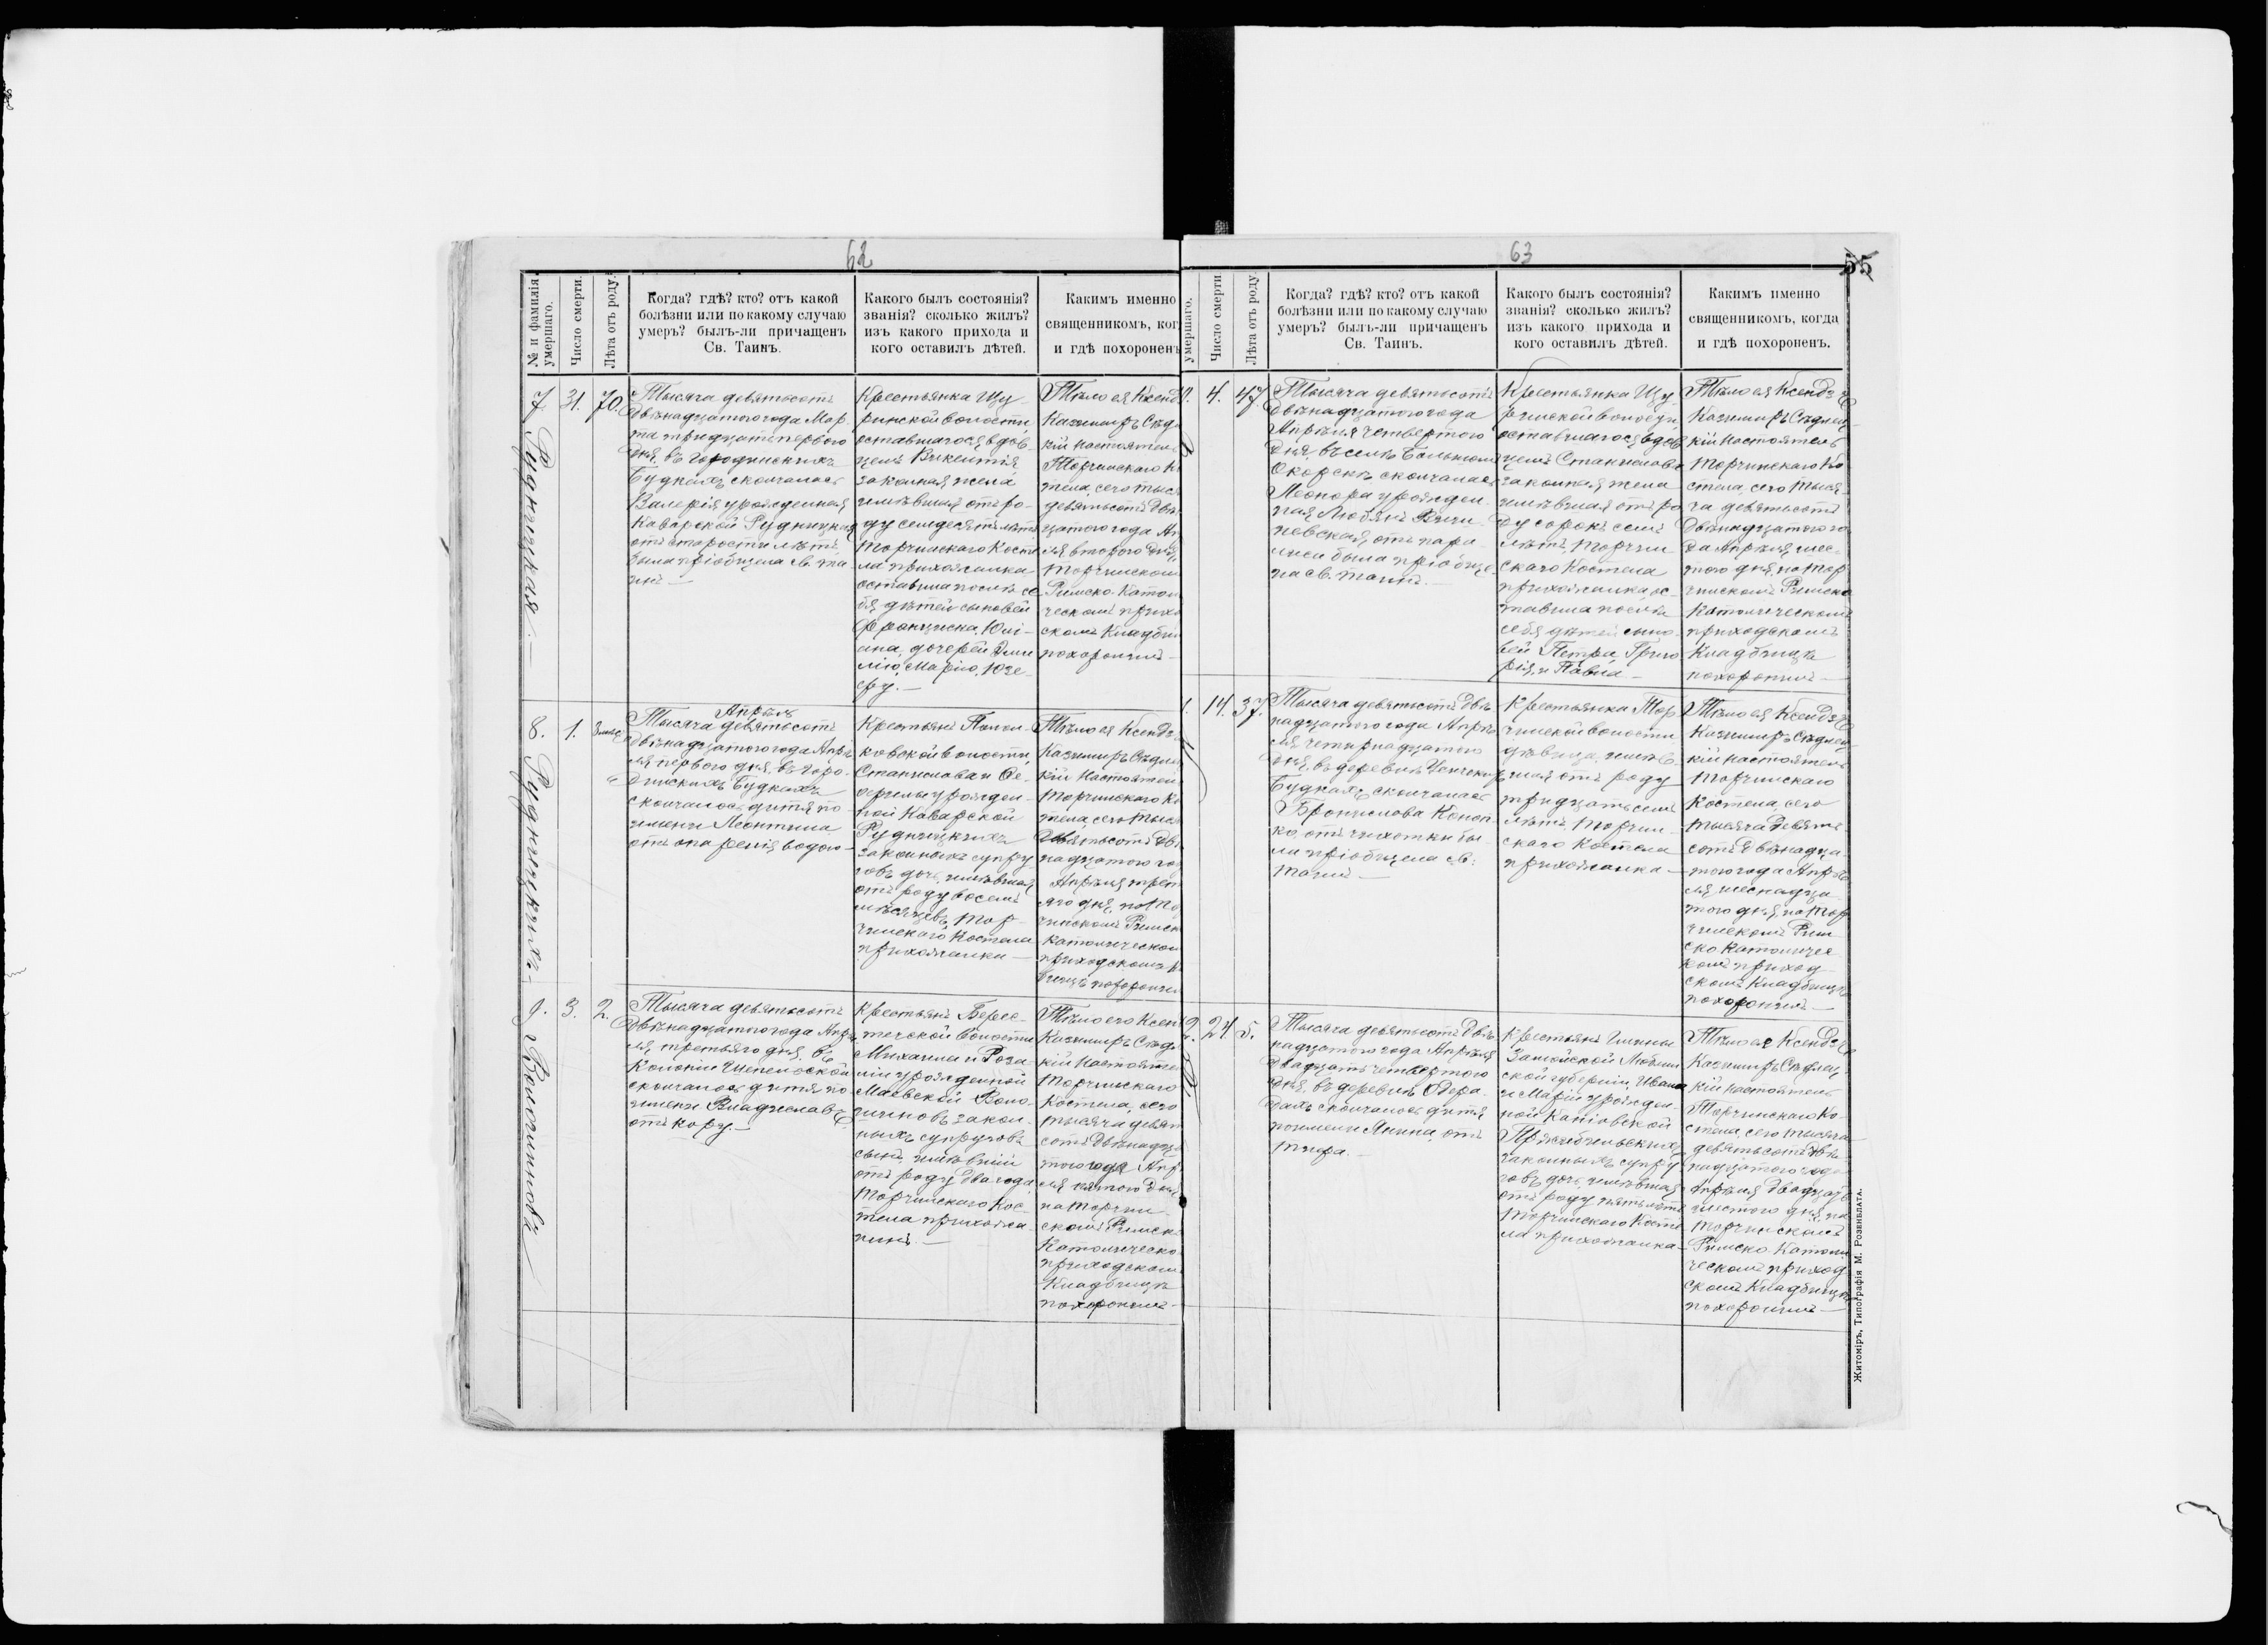 62
№ и фамилія умершаго.
Число смерти.
Лѣта отъ роду.
Когда? гдѣ? кто? отъ какой
болѣзни или по какому случаю
умеръ? былъ-ли причащенъ
Св. Таинъ.
Какого былъ состоянія?
званія? сколько жилъ?
изъ какого прихода и
кого оставилъ дѣтей.
Какимъ именно
священникомъ, ког
и гдѣ похороненъ
7. Рудницкая.
31.
70.
Тысяча девятьсотъ
двѣнадцатого года Мар
та тридцать перваго
дня, въ Городинскихъ
Будкахъ скончалась
Валерія урожденная
Каварской Рудницкая
отъ старости лѣтъ,
была пріобщена св. та
инъ —
Крестьянка Щу
ринской волости,
оставшагося вдов
цемъ Викентія,
законная жена
имѣвшая отъ ро-
ду семдесятъ лѣтъ
Торчинскаго Косте
ла прихожанка
оставила послѣ се
бя дѣтей сыновей
Франциска, Юлі-
ана, дочерей Эми
лію, Марію, Юзе-
фу. —
Тѣло ея Ксендз
Казимиръ Сѣдл
кій Настоятел
Торчинскаго К
тела, сего тыся
девятьсотъ двѣ
цатого года Ап
ля второго дня,
Торчинском
Римско-Катол
ческомъ прихо
скомъ Кладби
похоронилъ —
8. Рудницкихъ —
1.
8 мѣс.
Апрѣль
Тысяча девятьсотъ
двѣнадцатого года Апрѣ
ля перваго дня, въ Горо-
динскихъ Будкахъ
скончалось дитя по
имени Леонтина
отъ опаренія водою —
Крестьянъ Полон-
ковской волости,
Станислава и Ое-
офилы урожден-
ной Каварской
Рудницкихъ
законныхъ супру
говъ дочь, имѣвшая
отъ роду восемь
мѣсяцевъ, Тор-
чинскаго Костела
прихожанки —
Тѣло ея Ксендзъ
Казимиръ Сѣдле
кій Настоятел
Торчинскаго Ко
тела, сего тыся
девятьсотъ двѣ
надцатого го
Апрѣля трет
яго дня, на То
чинскомъ Римск
католическом
приходскомъ К
бищѣ похоронил
9. Волошиновъ
3.
2.
Тысяча девятьсотъ
двѣнадцатого года Апрѣ
ля, третьяго дня, въ
Колоніи Шепельской
скончалось дитя по
имени Владиславъ
отъ кору. —
Крестьянъ Берес-
течской волости
Михаила и Роза
ліи урожденной
Маевской Воло-
шиновъ закон-
ныхъ супруговъ
сынъ, имѣвшій
отъ роду два года,
Торчинскаго Кос
тела прихожа
нинъ. —
Тѣло его Ксен
Казимиръ Сѣдл
кій Настояте
Торчинскаго
Костела, сего
тысяча девят
сотъ двѣнадца
того года Апр
ля пятого дня,
на Торчин
скомъ Римск
Католическо
приходском
Кладбищѣ
похоронилъ —
63
55
умершаго.
Число смерти
Лѣта отъ роду.
Когда? гдѣ? кто? отъ какой
болѣзни или по какому случаю
умеръ? былъ-ли причащенъ
Св. Таинъ.
Какого былъ состоянія?
званія? сколько жилъ?
изъ какого прихода и
кого оставилъ дѣтей.
Какимъ именно
священникомъ, когда
и гдѣ похороненъ.
4.
47.
Тысяча девятьсотъ
двѣнадцатого года
Апрѣля четвертого
дня, въ селѣ Большомъ
Окорскѣ скончалась
Леонора урожден
ная Любянъ
отъ пара
лича была пріобще
на св. таинъ. —
Крестьянка Щу
ринской волости,
оставшагося вдов
цемъ Станислава
законная жена
имѣвшая отъ ро
ду сорокъ семь
лѣтъ, Торчин
скаго Костела
прихожанка, ос
тавила послѣ
себя дѣтей сыно
вей Петра, Григо
рія, и Павла —
Тѣло ея Ксендзъ
Казимиръ Сѣдлец
кій настоятель
Торчинскаго Ко
стела, сего тыся
ча девятьсотъ
двѣнадцатого го
да Апрѣля, шес-
того дня, на Тор
чинскомъ Римско
Католическомъ
приходскомъ
Кладбищѣ
похоронилъ —
14.
37.
Тысяча девятьсотъ двѣ
надцатого года Апрѣ
ля четырнадцатого
дня, въ деревнѣ
Будкахъ скончалась
Бронислава Коноп
ко, отъ чихотки бы
ла пріобщена св.
таинъ —
Крестьянка Тор
чинской волости
дѣвица, имѣв
шая отъ роду
тридцать семь
лѣтъ, Торчин-
скаго Костела
прихожанка —
Тѣло ея Ксендзъ
Казимиръ Сѣдлец
кій настоятель
Торчинскаго
Костела, сего
тысяча девять
сотъ двѣнадца-
того года Апрѣ
ля шеснадца-
того дня, на Тор
чинскомъ Рим-
ско Католичес
комъ приход-
скомъ Кладбищѣ
похоронилъ —
24
5.
Тысяча девятьсотъ двѣ
надцатого года Апрѣля
двадцать четвертого
дня, въ деревнѣ Одера-
дахъ скончалось дитя
по имени Янина, отъ
тифа. —
Крестьянъ Гмины
Замойской Люблин
ской губерніи, Ивана
и Маріи урожден-
ной Каніовской
законныхъ супру
говъ дочь, имѣвшая
отъ роду пять лѣтъ
Торчинскаго Косте
ла прихожанка —
Тѣло ея Ксендзъ
Казимиръ Сѣдлец
кій настоятель
Торчинскаго Ко-
стела, сего тысяча
девятьсотъ двѣ
надцатого года
Апрѣля двадцать
шестого дня, на
Торчинскомъ
Римско-Католи
ческомъ приход
скомъ Кладбищѣ
похоронилъ —
Житоміръ, Типографія М. Розенблата.